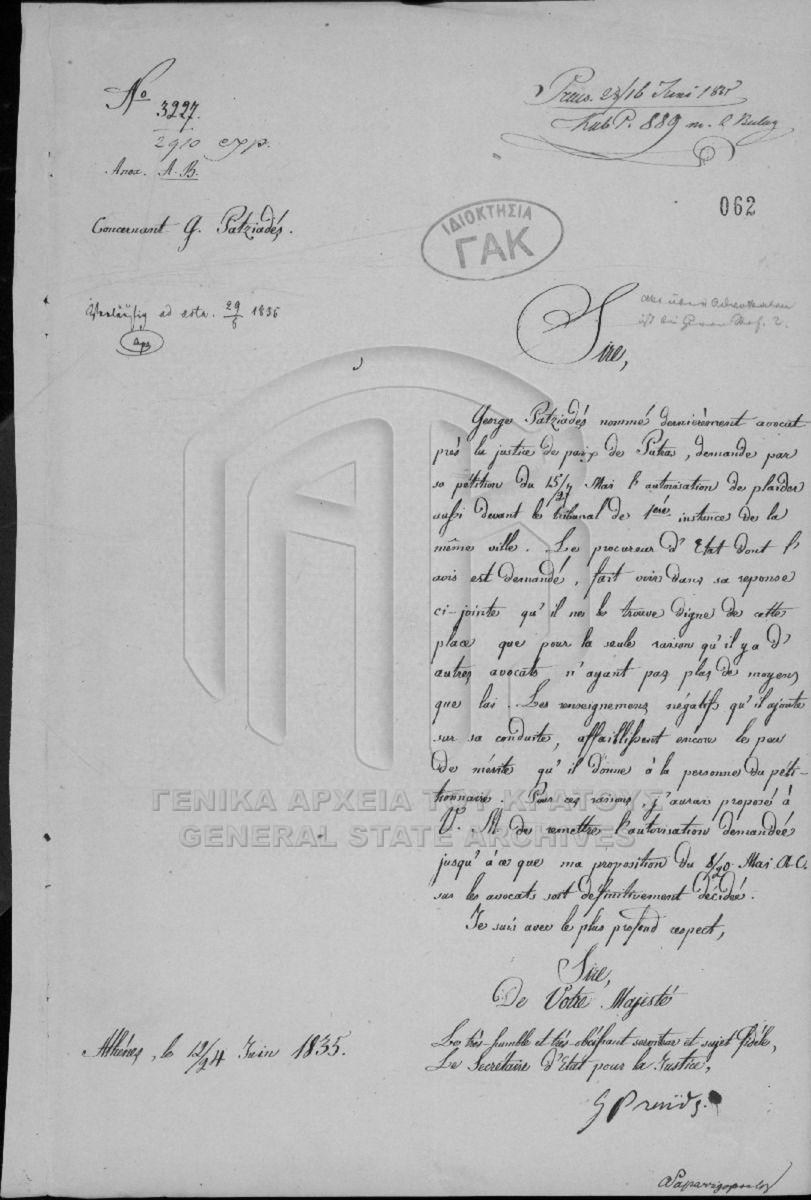 No
3227.
2910 exp.
Anex. A. B.
Praes. 28/16 Juni 1835
Kab P. 889
062
Concernant G. Patziadés.
ΙΔΙΟΚΤΗΣΙΑ
ΓΑΚ
Vorläufig ad acta. 29/5 1836
Sire,
George Patziadés nommé dernièrement avocat
près la justice de paix de Patras, demande par
sa pétition du 15/27 Mai l'autorisation de plaider
aussi devant le tribunal de 1ère instance de la
même ville. Le procureur d'Etat dont l'
avis est demandé, fait voir dans sa reponse
ci-jointe qu'il ne le trouve digne de cette
place que pour la seule raison qu'il y a d'
autres avocats n'ayant pas plus de moyens
que lui. Les renseignemens négatifs qu'il ajoute
sur sa conduite, affaiblissent encore le peu
de mérite qu'il donne à la personne du péti-
tionnaire. Pour ces raisons, j'aurais proposé à
V. M. de remettre l'autorisation demandée
jusqu'à ce que ma proposition du 8/20 Mai A.C.
sur les avocats soit définitivement décidée.
Je suis avec le plus profond respect,
ΓΕΝΙΚΑ ΑΡΧΕΙΑ ΤΟΥ ΚΡΑΤΟΥΣ
GENERAL STATE ARCHIVES
Sire,
De Votre Majesté
Athénes, le 12/24 Juin 1835.
Le très-humble et très-obéissant serviteur et sujet fidéle,
Le Secrétaire d'Etat pour la Justice,
G Praïdis.